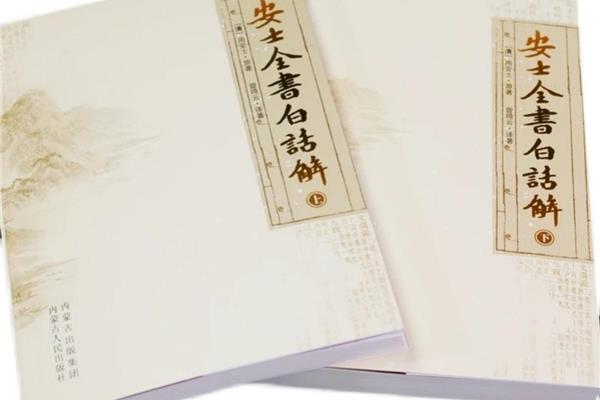 安士全書白話解
上
[清]周安士·原著
曾琦云·译著
内蒙古出版集团
内蒙古人民出版社
安士全書白話解
下
[清]周安士·原著
曾琦云·译著